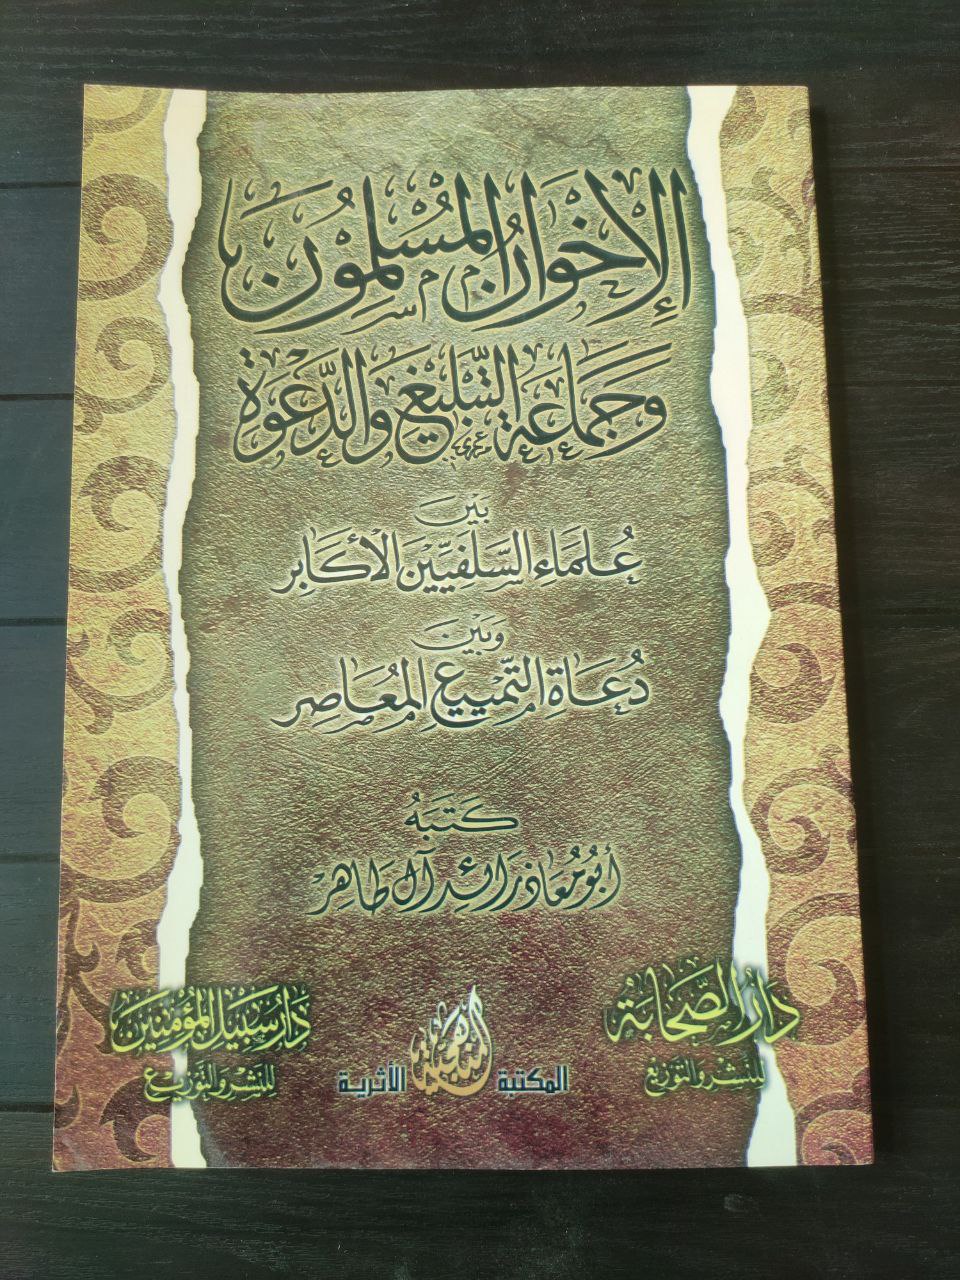 الإِخْوَانُ المُسْلِمُونَ
وَجَمَاعَةُ التَّبْلِيغِ وَالدَّعْوَةِ
بَيْنَ
عُلَمَاءِ السَّلَفِيِّينَ الأَكَابِرِ
وَبَيْنَ
دُعَاةِ التَّمْيِيعِ المُعَاصِرِ
كَتَبَهُ
أَبُو مُعَاذٍ رَائِد آل طَاهِر
دَارُ الصَّحَابَةِ
للنشر والتوزيع
المكتبة الأثرية
دَارُ سَبِيلِ المُؤْمِنِينَ
للنشر والتوزيع